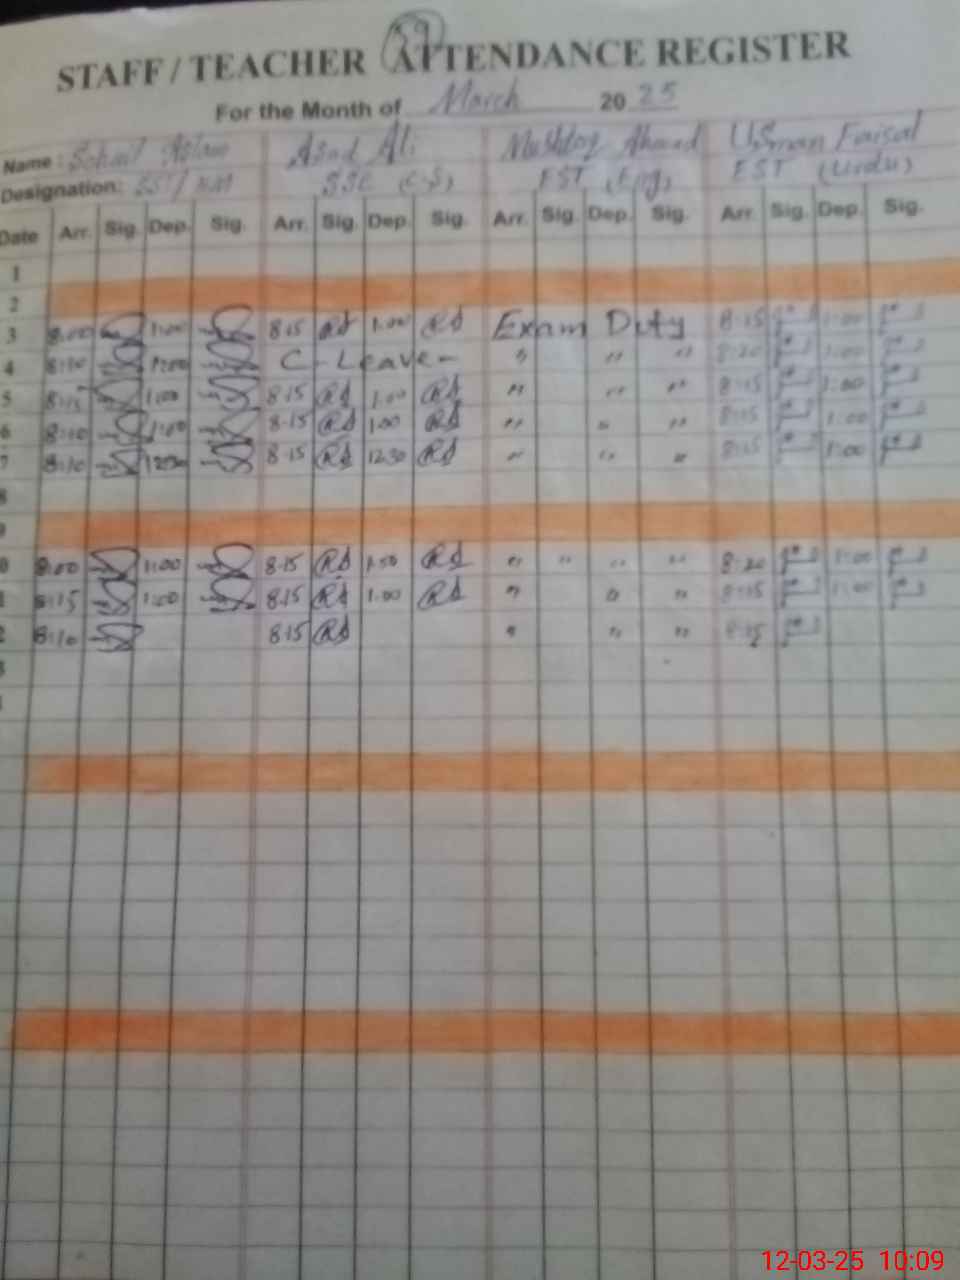 59
STAFF / TEACHER ATTENDANCE REGISTER
For the Month of March 2025
Name: Sohail Aslam Asad Ali Mushtaq Ahmad Usman Faisal
Designation: SST/ SSE (C.S) EST (Eng) EST (Urdu)
Date Arr. Sig. Dep. Sig. Arr. Sig. Dep. Sig. Arr. Sig. Dep. Sig. Arr. Sig. Dep. Sig.
1
2
3 8:00 1:00 8:15 1:00 Exam Duty 8:15 1:00
4 8:10 1:00 C-Leave- " " " 8:20 1:00
5 8:15 1:00 8:15 1:00 " " " 8:15 1:00
6 8:10 1:00 8:15 1:00 " " " 8:15 1:00
7 8:10 1230 8:15 1230 " " " 8:15 1:00
8
9
0 8:00 1:00 8:15 " " " " 8:20 1:00
1 8:15 1:00 8:15 1:00 " " " 8:15 1:00
2 8:10 8:15 " " " 8:15
3
12-03-25 10:09